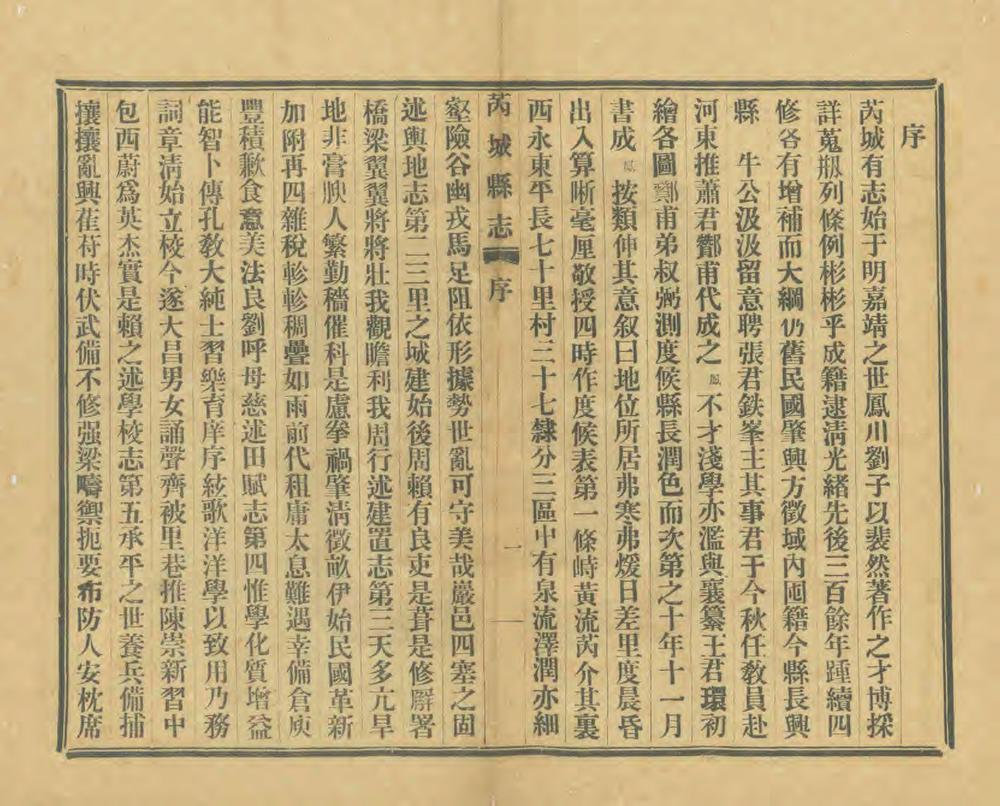 序
芮城有志始于明嘉靖之世鳳川劉子以裴然著作之才博採
詳蒐捌列條例彬彬乎成籍逮淸光緖先後三百餘年踵續四
修各有增補而大綱仍舊民國肇興方徵域內囘籍今縣長興
縣 牛公汲汲留意聘張君鉄峯主其事君于今秋任敎員赴
河東推蕭君酇甫代成之鳳不才淺學亦濫與襄纂王君環初
繪各圖酇甫弟叔弼測度候縣長潤色而次第之十年十一月
書成鳳按類伸其意叙曰地位所居弗寒弗煖日差里度晨昏
出入算晰毫厘敬授四時作度候表第一條峙黃流芮介其裏
西永東平長七十里村三十七隸分三區中有泉流澤潤亦細
芮城縣志 序 一
壑險谷幽戎馬足阻依形據勢世亂可守美哉巖邑四塞之固
述輿地志第二三里之城建始後周賴有良吏是葺是修廨署
橋梁翼翼將將壯我觀瞻利我周行述建置志第三天多亢旱
地非膏腴人繁勤穡催科是慮拳禍肇淸徵畝伊始民國革新
加附再四雜稅軫軫稠疊如雨前代租庸太息難遇幸備倉庾
豐積歉食意美法良劉呼母慈述田賦志第四惟學化質增益
能智卜傳孔敎大純士習樂育庠序絃歌洋洋學以致用乃務
詞章淸始立校今遂大昌男女誦聲齊被里巷推陳崇新習中
包西蔚爲英杰實是賴之述學校志第五承平之世養兵備捕
攘攘亂興萑苻時伏武備不修强梁疇禦扼要布防人安枕席